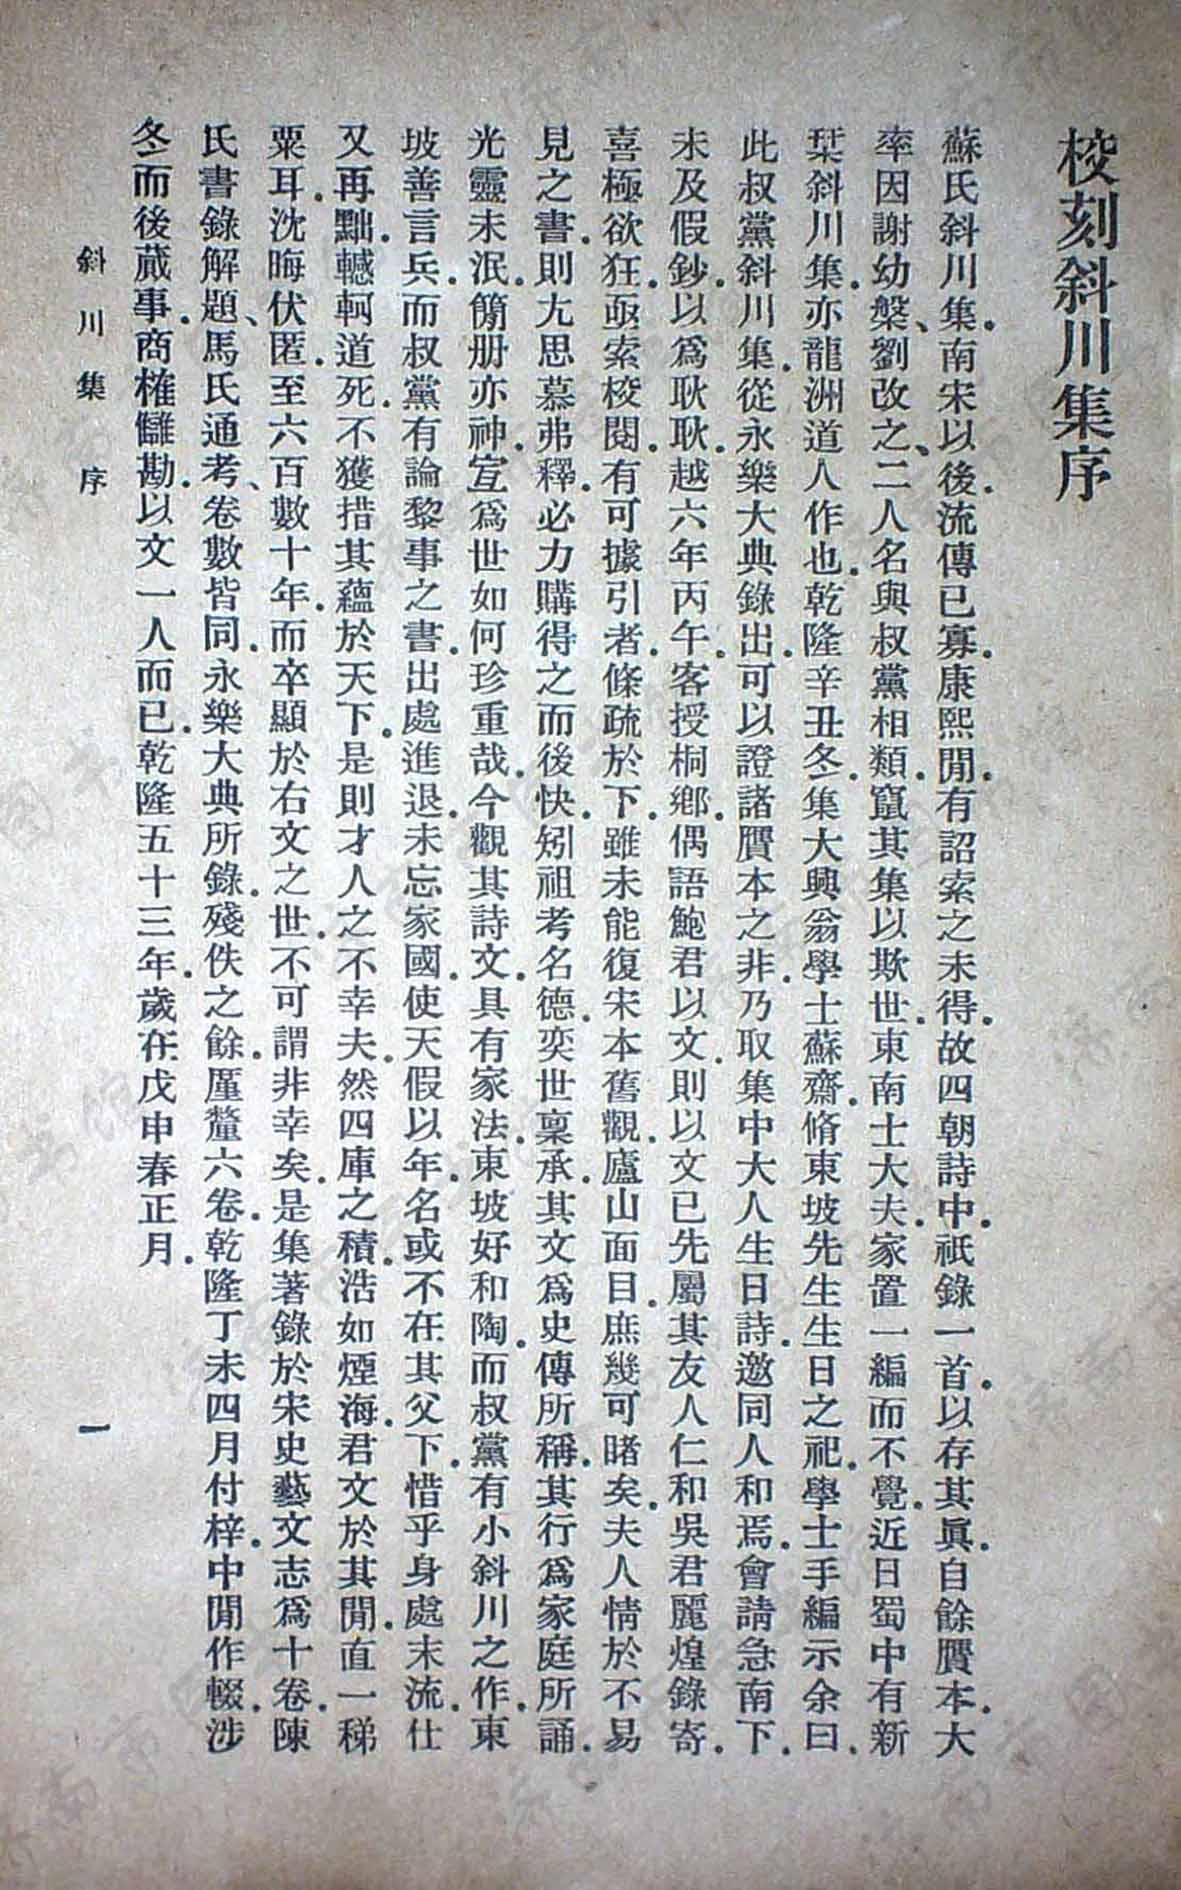 校刻斜川集序
蘇氏斜川集。南宋以後。流傳已寡。康熙閒。有詔索之未得。故四朝詩中。祇錄一首。以存其眞。自餘贋本。大
率因謝幼槃、劉改之、二人名與叔黨相類。竄其集以欺世。東南士大夫。家置一編而不覺。近日蜀中有新
栞斜川集。亦龍洲道人作也。乾隆辛丑冬。集大興翁學士蘇齋。脩東坡先生生日之祀。學士手編示余曰。
此叔黨斜川集。從永樂大典錄出。可以證諸贋本之非。乃取集中大人生日詩。邀同人和焉。會請急南下。
未及假鈔。以爲耿耿。越六年丙午。客授桐鄉。偶語鮑君以文。則以文已先屬其友人仁和吳君麗煌錄寄。
喜極欲狂。亟索校閱。有可據引者。條疏於下。雖未能復宋本舊觀。廬山面目。庶幾可睹矣。夫人情於不易
見之書。則尢思慕弗釋。必力購得之而後快。矧祖考名德。奕世稟承。其文爲史傳所稱。其行爲家庭所誦。
光靈未泯。簡册亦神。宜爲世如何珍重哉。今觀其詩文。具有家法。東坡好和陶。而叔黨有小斜川之作。東
坡善言兵。而叔黨有論黎事之書。出處進退。未忘家國。使天假以年。名或不在其父下。惜乎身處末流。仕
又再黜。轗軻道死。不獲措其蘊於天下。是則才人之不幸夫。然四庫之積。浩如煙海。君文於其閒。直一稊
粟耳。沈晦伏匿。至六百數十年。而卒顯於右文之世。不可謂非幸矣。是集著錄於宋史藝文志爲十卷。陳
氏書錄解題、馬氏通考、卷數皆同。永樂大典所錄。殘佚之餘。厘釐六卷。乾隆丁未四月付梓。中閒作輟。涉
冬而後蕆事。商榷讎勘。以文一人而已。乾隆五十三年。歲在戊申春正月。
斜川集 序 一